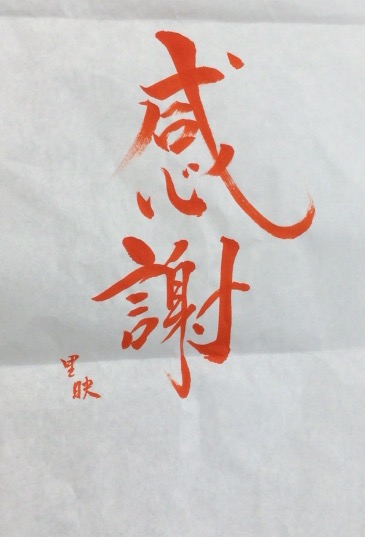 感謝
里映